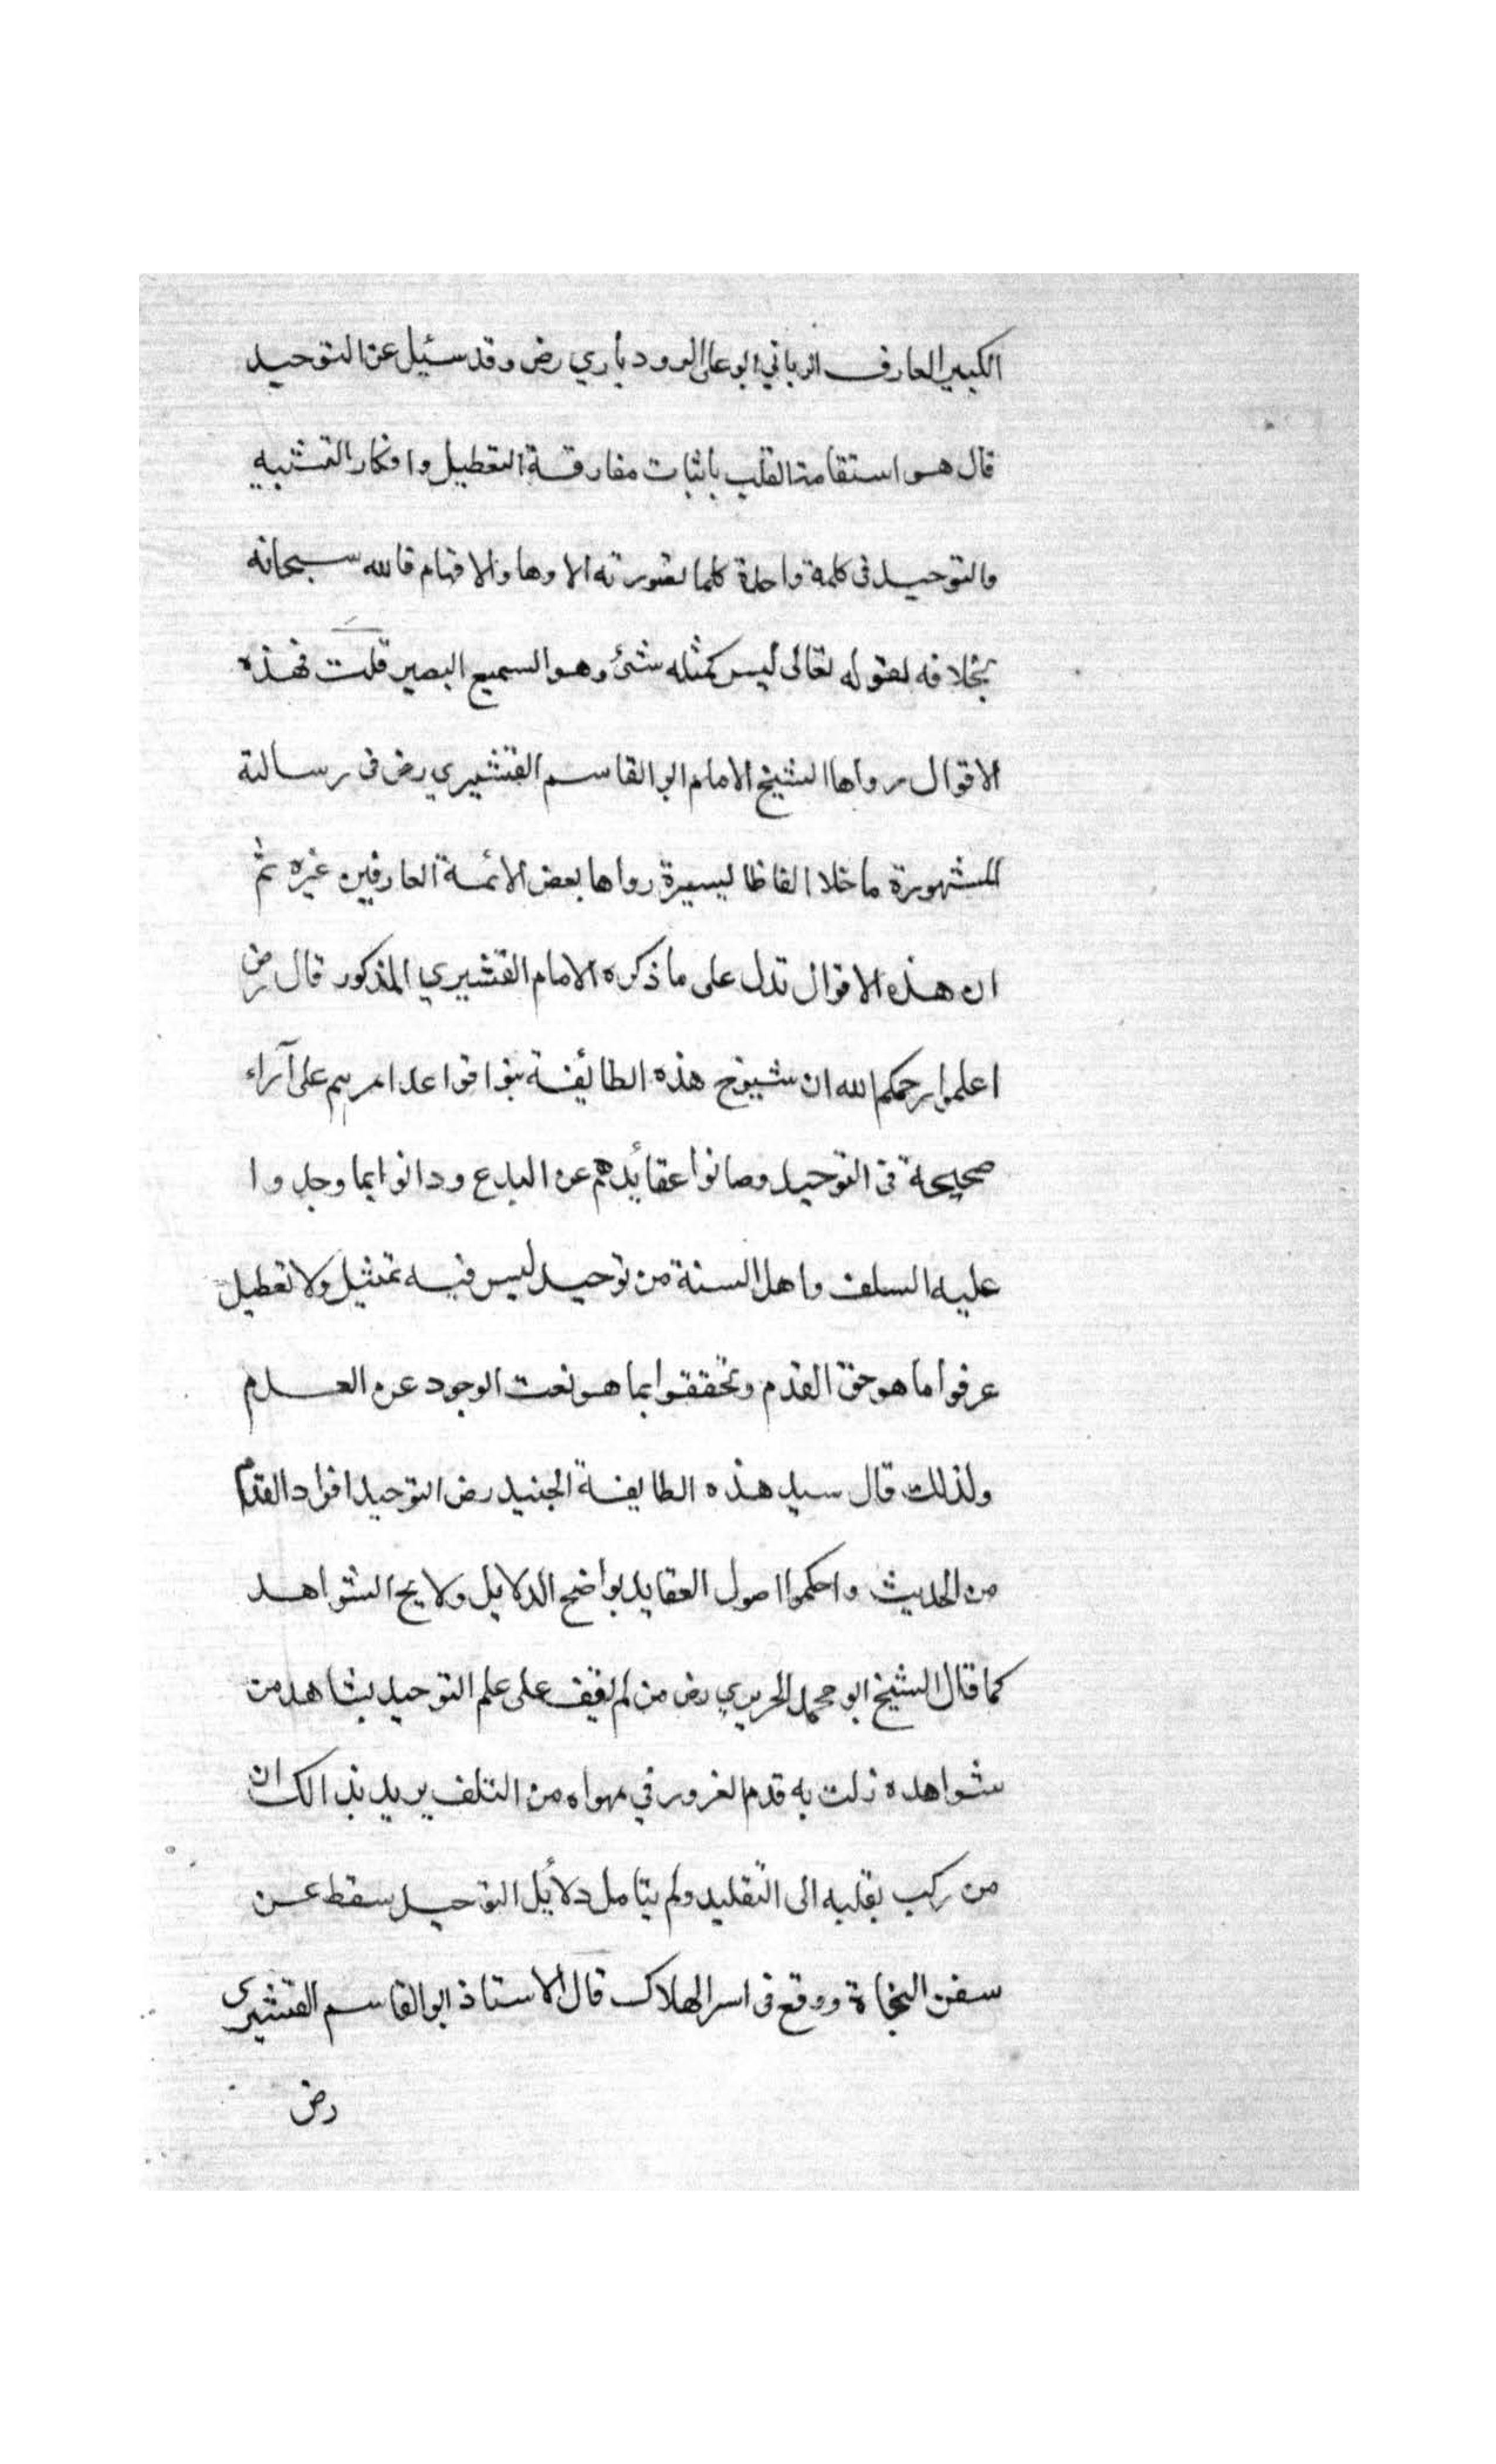 الكبير العارف الرباني ابو على الرودباري رض وقد سئيل عن التوحيد
قال هو استقامة القلب باثبات مفارقة التعطيل وانكار التشبيه
والتوحيد فى كلمة واحدة كلما تصورته الاوهام والافهام فالله سبحانه
بخلافه لقوله تعالى ليس كمثله شئ وهو السميع البصير قلت فهذه
الاقوال رواها الشيخ الامام ابو القاسم القشيري رض فى رسالته
المشهورة ما خلا الفاظا يسيرة رواها بعض الائمة العارفين غيره ثم
ان هذه الاقوال تدل على ما ذكره الامام القشيري المذكور قال رض
اعلموا رحمكم الله ان شيوخ هذه الطائيفة بنوا قواعد امرهم على آراء
صحيحة فى التوحيد وصانوا عقائيدهم عن البدع ودانوا بما وجدوا
عليه السلف واهل السنة من توحيد ليس فيه تمثيل ولا تعطيل
عرفوا ما هو حق القدم وتحققوا بما هو نعت الوجود عن العدم
ولذلك قال سيد هذه الطايفة الجنيد رض التوحيد افراد القدم
من الحديث واحكموا اصول العقايد بواضح الدلايل ولايح الشواهد
كما قال الشيخ ابو محمد الحريري رض من لم يقف على علم التوحيد بشاهد من
شواهده زلت به قدم الغرور في مهواه من التلف يريد بذالك ان
من ركب بقلبه الى التقليد ولم يتامل دلائيل التوحيد سقط عن
سفن النجاة ووقع فى اسر الهلاك قال الاستاذ ابو القاسم القشيرى
رض